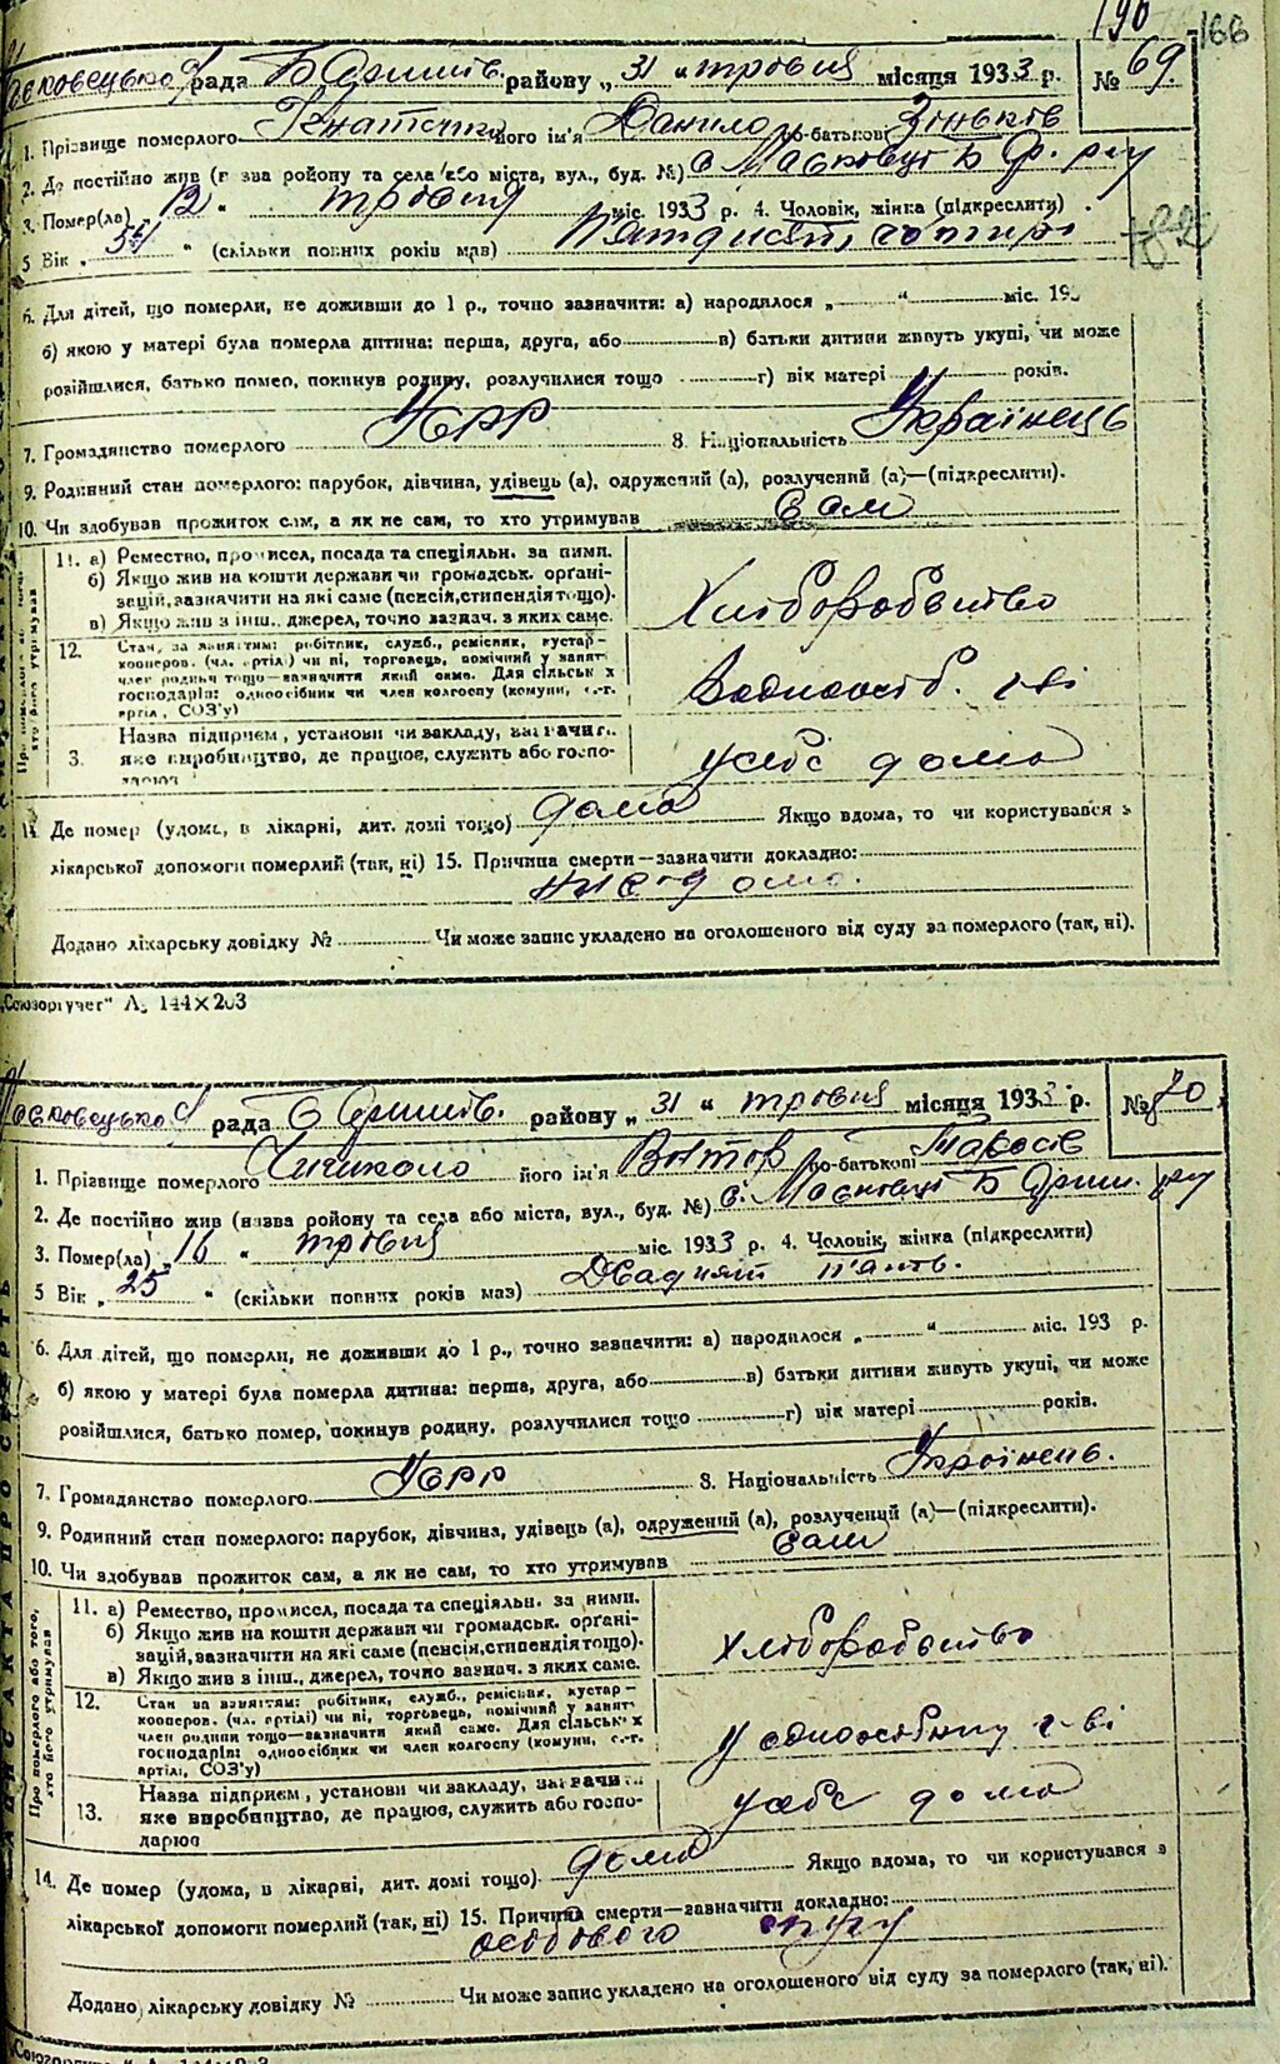 190 166
рада Б Яришів. району „ 31 “ травня місяця 1933 р. № 69.
1. Прізвище померлого Ігнатенко його ім'я Данило по-батькові Зіньків
2. Де постійно жив (назва району та села або міста, вул., буд. №) с Маєковці Б Яр. р-ну
3. Помер(ла) „ 12 “ травня міс. 1933 р. 4. Чоловік, жінка (підкреслити)
5 Вік „ 54 “ (скільки повних років мав) П'ятдисят чотирі
6. Для дітей, що померли, не доживши до 1 р., точно зазначити: а) народилося „ “ міс. 193
б) якою у матері була померла дитина: перша, друга, або в) батьки дитини живуть укупі, чи може
розійшлися, батько помер, покинув родину, розлучилися тощо г) вік матері років.
7. Громадянство померлого УСРР 8. Національність Українець
9. Родинний стан померлого: парубок, дівчина, удівець (а), одружений (а), розлучений (а)—(підкреслити).
10. Чи здобував прожиток сам, а як не сам, то хто утримував Сам
11. а) Ремество, промисел, посада та спеціяльн. за ними.
б) Якщо жив на кошти держави чи громадськ. органі-
зацій, зазначити на які саме (пенсія, стипендія тощо).
в) Якщо жив з інш., джерел, точно зазнач. з яких саме.
Хліборобство
12. Стан за заняттям: робітник, служб., ремісник, кустар—
кооперов. (чл. артілі) чи ні, торговець, помічний у занят.
член родини тощо—зазначити який саме. Для сільськ х
господарів: одноосібник чи член колгоспу (комуни, с.-г.
артіл, СОЗ'у)
Водноосіб. г-ві
3. Назва підприєм, установи чи закладу, зазначити
яке виробництво, де працює, служить або госпо-
дарює
у себе дома
14. Де помер (удома, в лікарні, дит. домі тощо) дома Якщо вдома, то чи користувався з
лікарської допомоги померлий (так, ні) 15. Причина смерти—зазначити докладно:
Додано лікарську довідку № Чи може запис укладено на оголошеного від суду за померлого (так, ні).
„Союзоргучет“ А5 144×203
рада Б Яришів. району „ 31 “ травня місяця 1933 р. № 70
1. Прізвище померлого його ім'я Віктор по-батькові Тарасів
2. Де постійно жив (назва району та села або міста, вул., буд. №) с. Маєковці Б Яриш. р-ну
3. Помер(ла) „ 16 “ травня міс. 1933 р. 4. Чоловік, жінка (підкреслити)
5 Вік „ 25 “ (скільки повних років мав) Двадцят п'ять.
6. Для дітей, що померли, не доживши до 1 р., точно зазначити: а) народилося „ “ міс. 193 р.
б) якою у матері була померла дитина: перша, друга, або в) батьки дитини живуть укупі, чи може
розійшлися, батько помер, покинув родину, розлучилися тощо г) вік матері років.
7. Громадянство померлого УСРР 8. Національність Українець.
9. Родинний стан померлого: парубок, дівчина, удівець (а), одружений (а), розлучений (а)—(підкреслити).
10. Чи здобував прожиток сам, а як не сам, то хто утримував сам
Про померлого або того, хто його утримував
11. а) Ремество, промисел, посада та спеціяльн. за ними.
б) Якщо жив на кошти держави чи громадськ. органі-
зацій, зазначити на які саме (пенсія, стипендія тощо).
в) Якщо жив з інш., джерел, точно зазнач. з яких саме.
хліборобство
12. Стан за заняттям: робітник, служб., ремісник, кустар—
кооперов. (чл. артілі) чи ні, торговець, помічний у занят.
член родини тощо—зазначити який саме. Для сільськ х
господарів: одноосібник чи член колгоспу (комуни, с.-г.
артілі, СОЗ'у)
у одноосібному г-ві
13. Назва підприєм, установи чи закладу, зазначити
яке виробництво, де працює, служить або госпо-
дарює
у себе дома
14. Де помер (удома, в лікарні, дит. домі тощо) дома Якщо вдома, то чи користувався з
лікарської допомоги померлий (так, ні) 15. Причина смерти—зазначити докладно:
особового
Додано лікарську довідку № Чи може запис укладено на оголошеного від суду за померлого (так, ні).